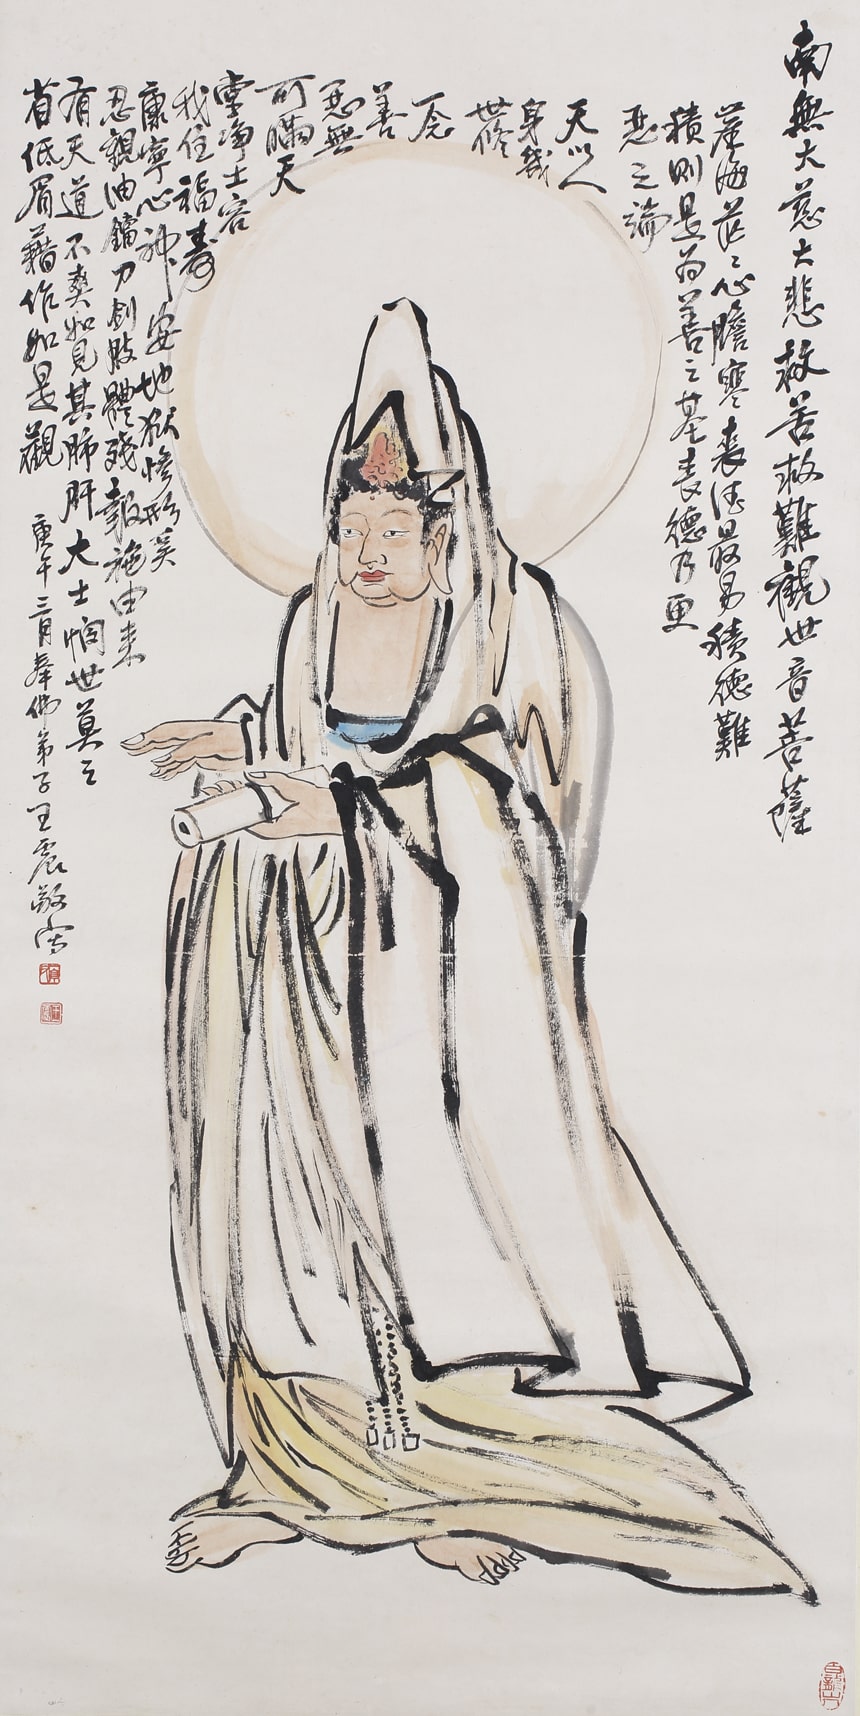 南無大慈大悲救苦救難觀世音菩薩
海茫茫心膽寒喪德最易積德難
積則是為善之基喪德乃更
惡之端
人
身幾
世修
一念
善
惡無
可瞞天
堂淨土容
我住福壽
康寧心神安地獄慘形奚
忍觀油鑊刀劍肢體殘報施由來
有天道不爽如見其肺肝大士憫世莫之
省低眉藉作如是觀
庚午三月奉佛弟子王震敬寫